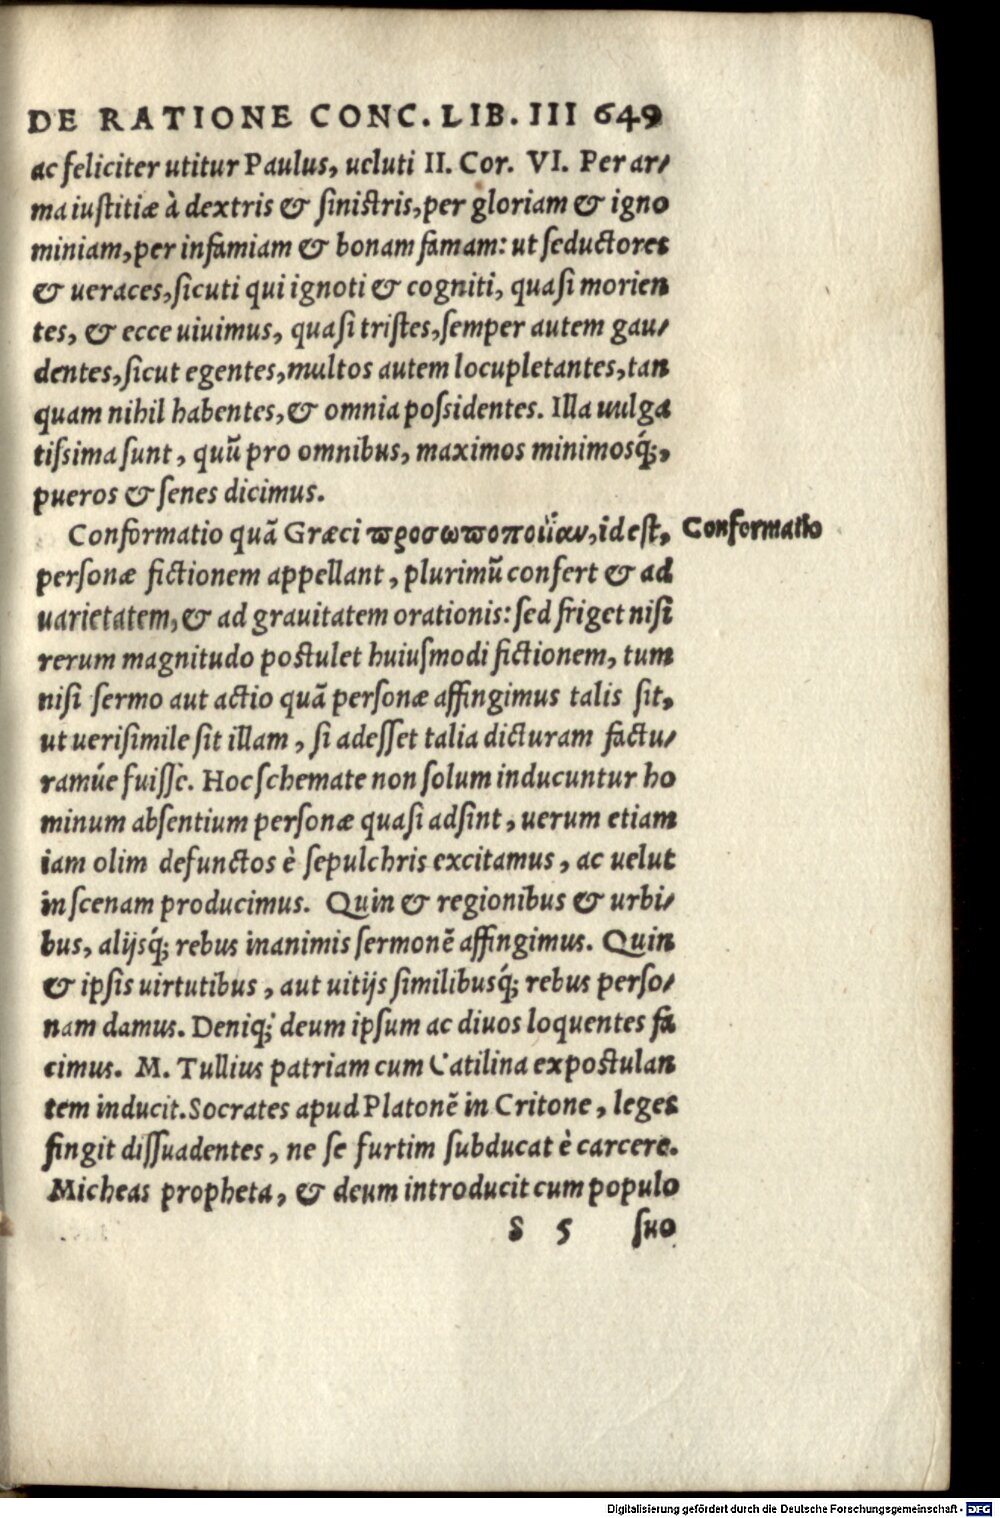 DE RATIONE CONC. LIB. III 649
ac feliciter utitur Paulus, ueluti II. Cor. VI. Per ar⸗
ma iuſtitiæ à dextris & ſiniſtris, per gloriam & igno
miniam, per infamiam & bonam famam: ut ſeductores
& ueraces, ſicuti qui ignoti & cogniti, quaſi morien
tes, & ecce uiuimus, quaſi triſtes, ſemper autem gau⸗
dentes, ſicut egentes, multos autem locupletantes, tan
quam nihil habentes, & omnia poſsidentes. Illa uulga
tiſsima ſunt, quū pro omnibus, maximos minimosq́;,
pueros & ſenes dicimus.
Conformatio quā Græci ϖροσωϖοποιΐαν, id eſt, Conformatio
perſonæ fictionem appellant, plurimū confert & ad
uarietatem, & ad grauitatem orationis: ſed friget niſi
rerum magnitudo poſtulet huiuſmodi fictionem, tum
niſi ſermo aut actio quā perſonæ affingimus talis ſit,
ut ueriſimile ſit illam, ſi adeſſet talia dicturam factu⸗
ramúe fuiſſe. Hoc ſchemate non ſolum inducuntur ho
minum abſentium perſonæ quaſi adſint, uerum etiam
iam olim defunctos è ſepulchris excitamus, ac uelut
in ſcenam producimus. Quin & regionibus & urbi⸗
bus, alijsq́; rebus inanimis ſermonē affingimus. Quin
& ipſis uirtutibus, aut uitijs ſimilibusq́; rebus perſo⸗
nam damus. Deniq; deum ipſum ac diuos loquentes fa
cimus. M. Tullius patriam cum Catilina expoſtulan
tem inducit. Socrates apud Platonē in Critone, leges
fingit diſſuadentes, ne ſe furtim ſubducat è carcere.
Micheas propheta, & deum introducit cum populo
S 5 ſuo
Digitalisierung gefördert durch die Deutsche Forschungsgemeinschaft - DFG